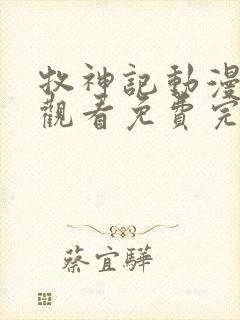 牧神記動漫
觀看免費完
蔡宜驊